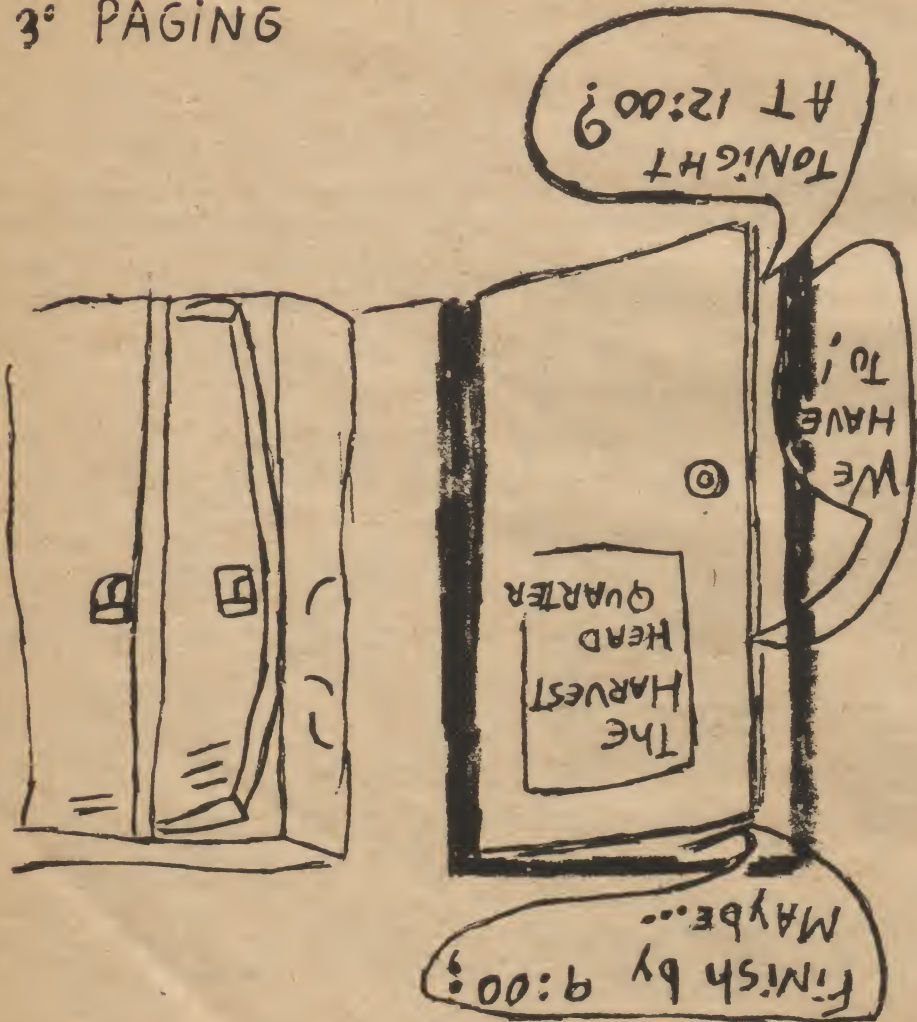 3° PAGiNG
FiNiSh by 9:00?
MAyBE...
The
HARVEST
HEAD
QUARTER
WE
HAVE
TO!
TONiGHT
AT 12:00?